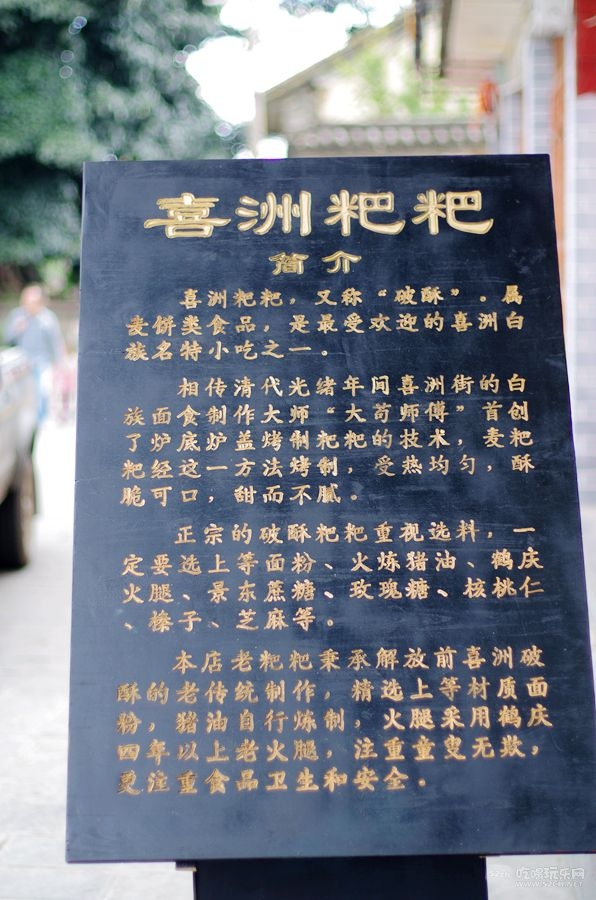 喜洲粑粑
简介
喜洲粑粑，又称“破酥”。属
麦饼类食品，是最受欢迎的喜洲白
族名特小吃之一。
相传清代光绪年间喜洲街的白
族面食制作大师“大苟师傅”首创
了炉底炉盖烤制粑粑的技术，麦粑
粑经这一方法烤制，受热均匀，酥
脆可口，甜而不腻。
正宗的破酥粑粑重视选料，一
定要选上等面粉、火炼猪油、鹤庆
火腿、景东蔗糖、玫瑰糖、核桃仁
、榛子、芝麻等。
本店老粑粑秉承解放前喜洲破
酥的老传统制作，精选上等材质面
粉，猪油自行炼制，火腿采用鹤庆
四年以上老火腿，注重童叟无欺，
更注重食品卫生和安全。
吃喝玩乐网
www.52ch.net